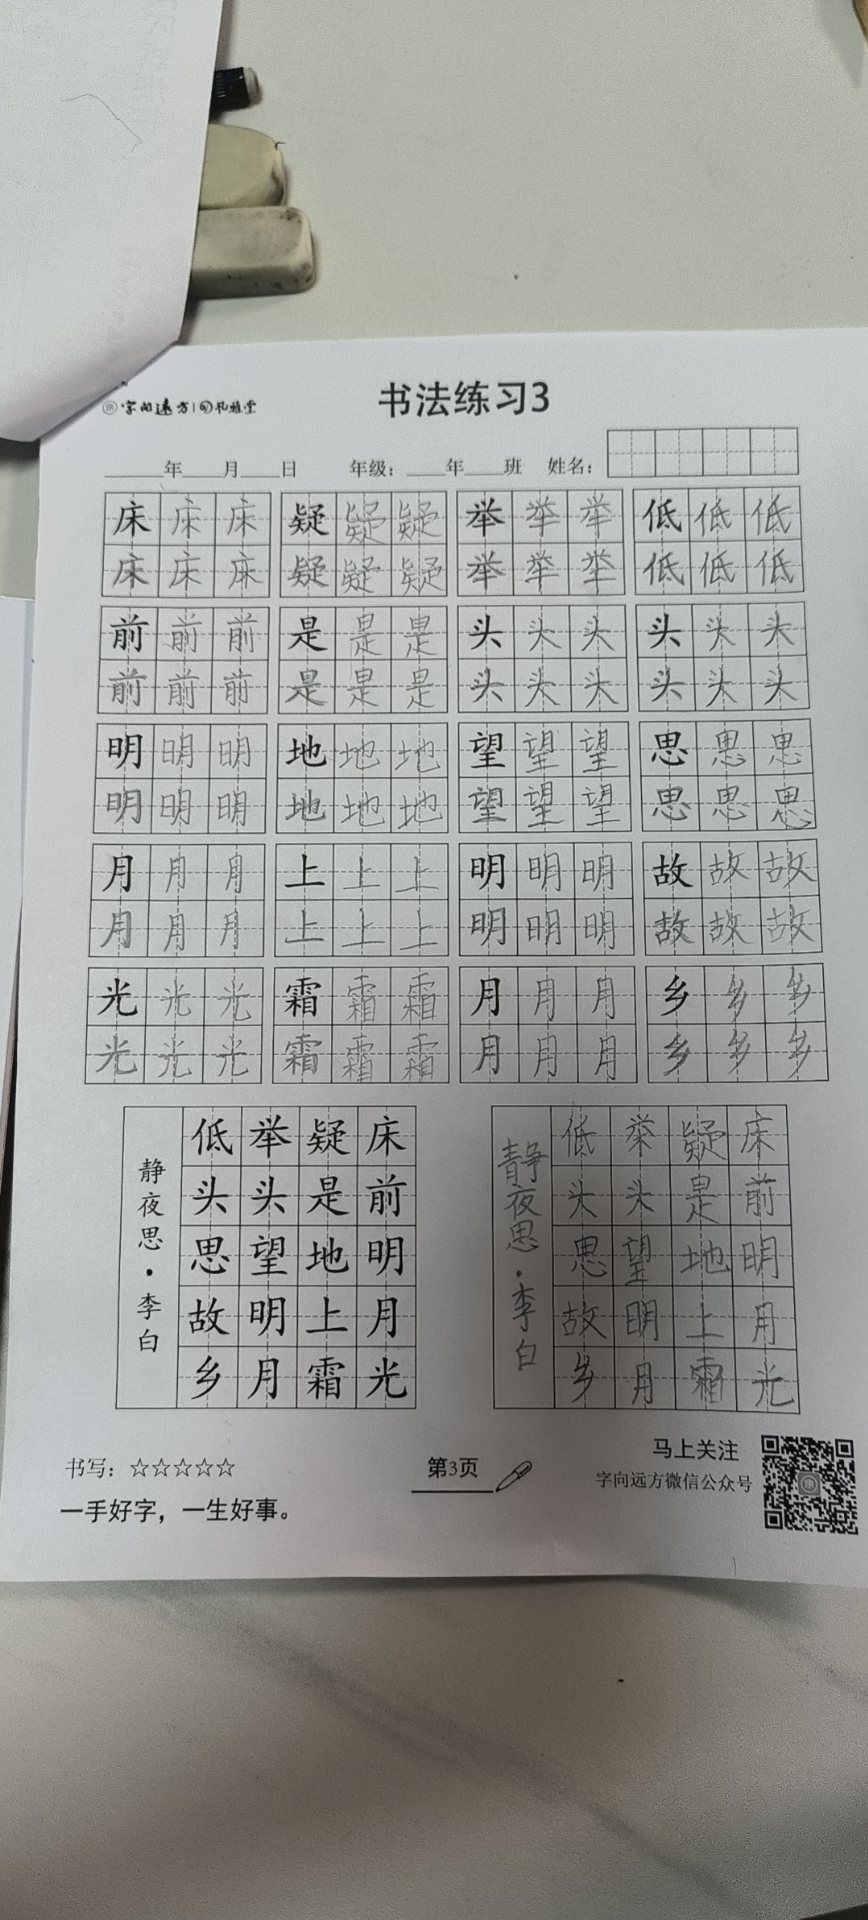 字向远方 孔雅堂
书法练习3
____年____月____日 年级：____年____班 姓名：
床床床 疑疑疑 举举举 低低低
床床床 疑疑疑 举举举 低低低
前前前 是是是 头头头 头头头
前前前 是是是 头头头 头头头
明明明 地地地 望望望 思思思
明明明 地地地 望望望 思思思
月月月 上上上 明明明 故故故
月月月 上上上 明明明 故故故
光光光 霜霜霜 月月月 乡乡乡
光光光 霜霜霜 月月月 乡乡乡
床前明月光
疑是地上霜
举头望明月
低头思故乡
静夜思·李白
床前明月光
疑是地上霜
举头望明月
低头思故乡
静夜思·李白
书写：☆☆☆☆☆
一手好字，一生好事。
第3页
马上关注
字向远方微信公众号